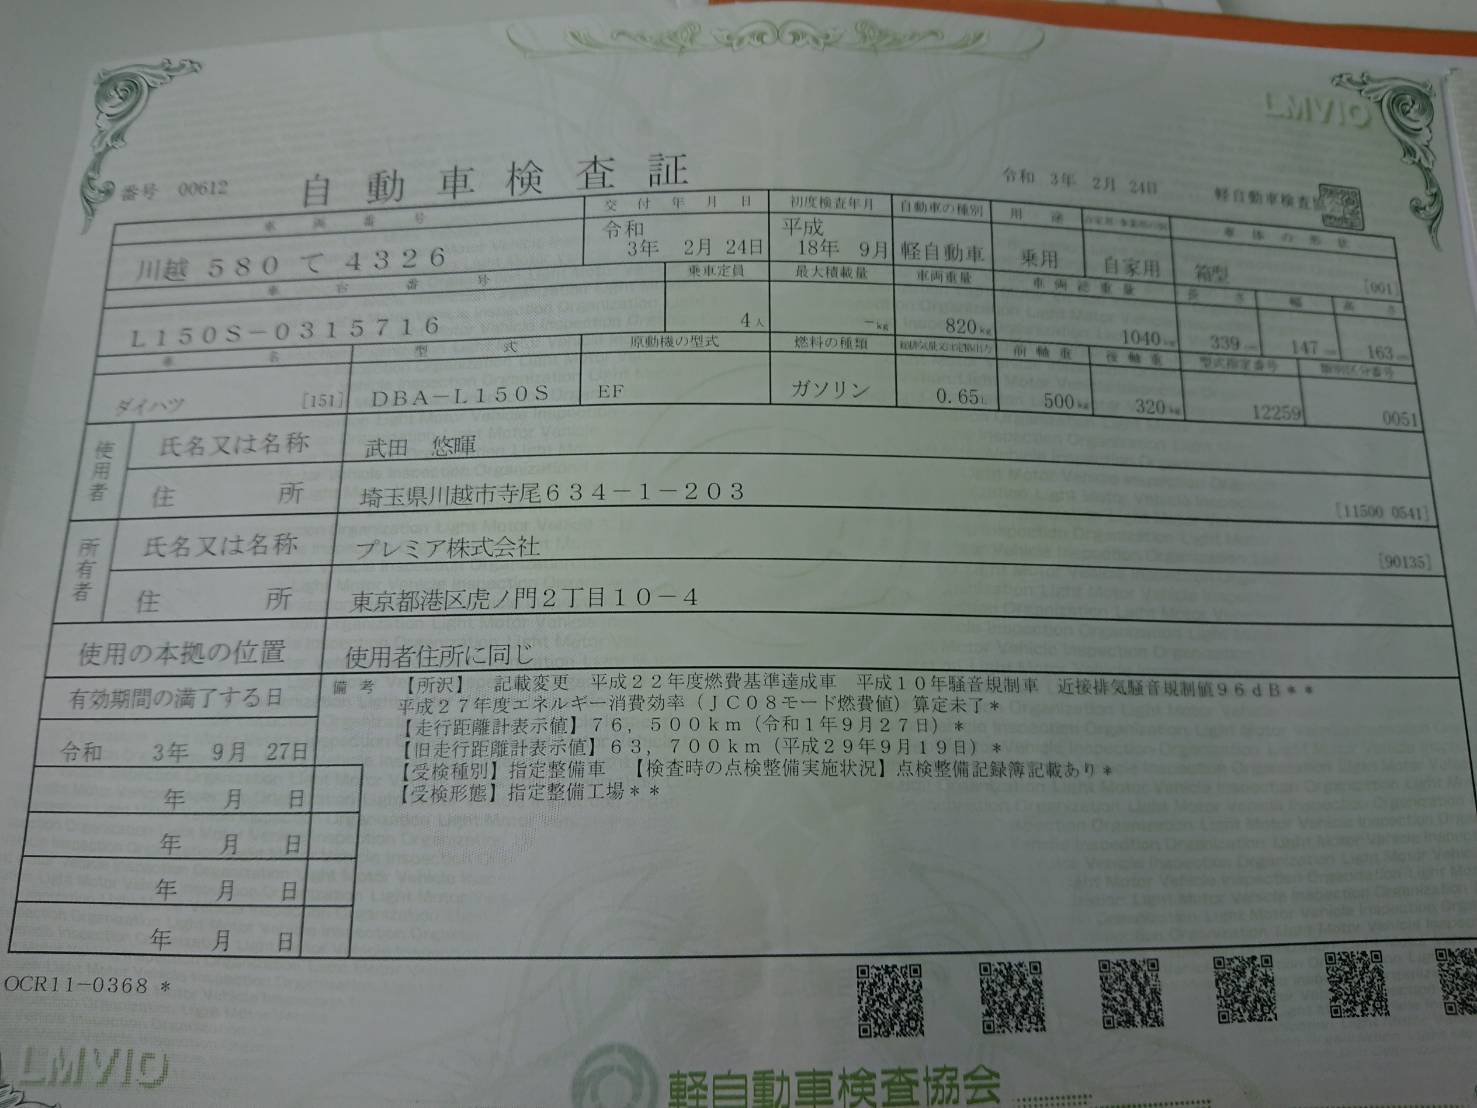 LMVIO
番号 00612
自動車検査証
令和 3年 2月 24日
軽自動車検査協
車両番号 交付年月日 初度検査年月 自動車の種別 用途 車体の形状
川越 580 て 4326 令和 3年 2月 24日 平成 18年 9月 軽自動車 乗用 自家用 箱型 [001]
車台番号 乗車定員 最大積載量 車両重量 車両総重量 長さ 幅 高さ
L150S-0315716 4人 -kg 820kg 1040kg 339cm 147cm 163cm
車名 型式 原動機の型式 燃料の種類 前軸重 後軸重 型式指定番号 類別区分番号
ダイハツ [151] DBA-L150S EF ガソリン 0.65L 500kg 320kg 12259 0051
使用者 氏名又は名称 武田 悠暉
住所 埼玉県川越市寺尾634-1-203 [11500 0541]
所有者 氏名又は名称 プレミア株式会社 [90135]
住所 東京都港区虎ノ門2丁目10-4
使用の本拠の位置 使用者住所に同じ
有効期間の満了する日
令和 3年 9月 27日
年 月 日
年 月 日
年 月 日
年 月 日
備考 【所沢】 記載変更 平成22年度燃費基準達成車 平成10年騒音規制車 近接排気騒音規制値96dB**
平成27年度エネルギー消費効率(JC08モード燃費値)算定未了*
【走行距離計表示値】76,500km(令和1年9月27日)*
【旧走行距離計表示値】63,700km(平成29年9月19日)*
【受検種別】指定整備車 【検査時の点検整備実施状況】点検整備記録簿記載あり*
【受検形態】指定整備工場**
OCR11-0368 *
LMVIO
軽自動車検査協会